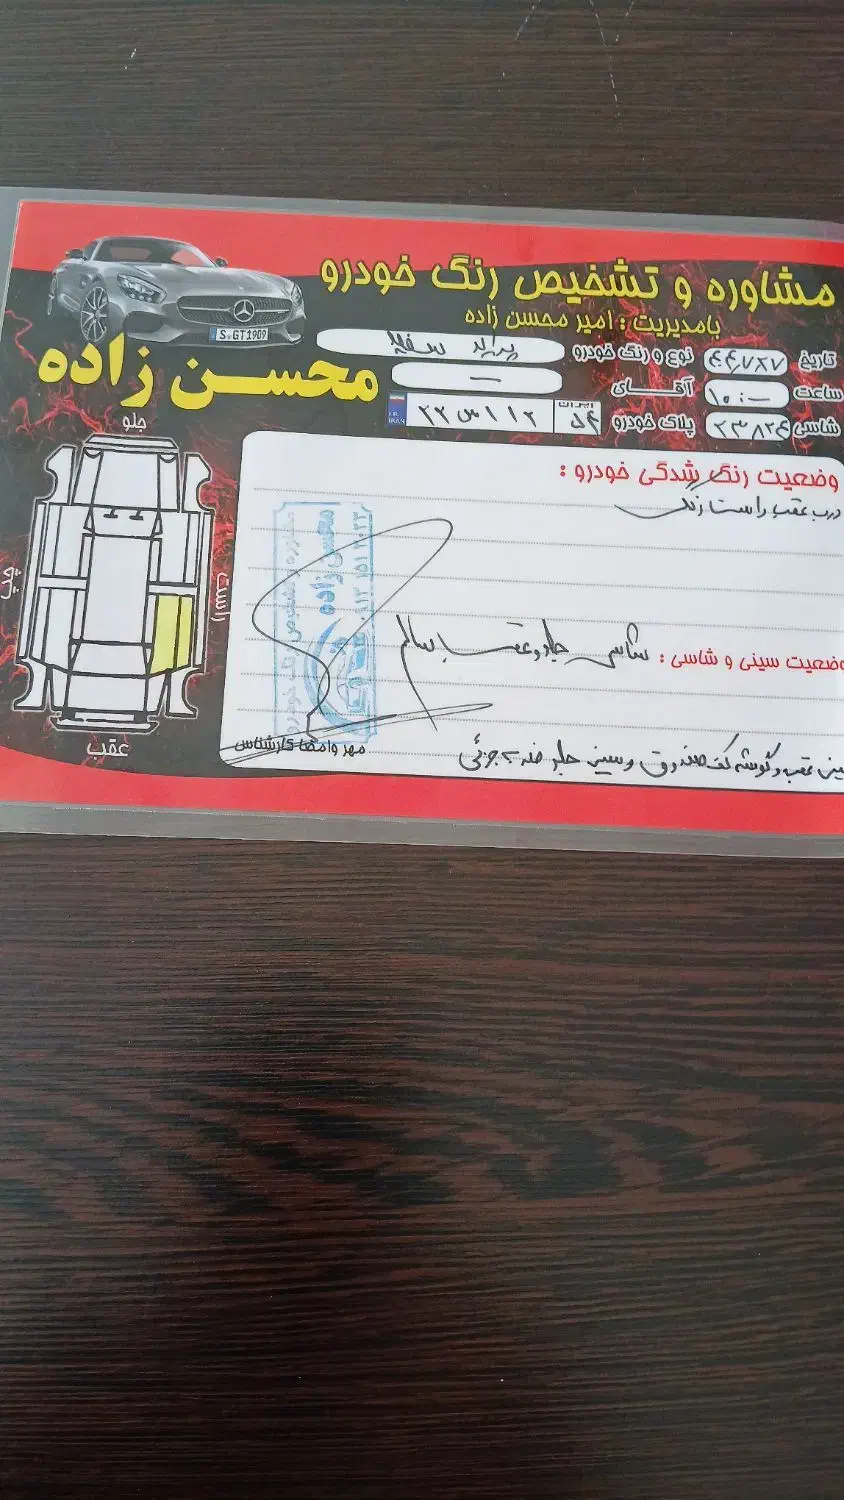 مشاوره و تشخیص رنگ خودرو
بامدیریت : امیر محسن زاده
محسن زاده
S GT 1909
تاریخ
نوع و رنگ خودرو پراید سفید
ساعت ۱۰:۰۰ آقـــای —
شاسی ۲۳۸۲۴ پلاک خودرو ایران
I.R. IRAN
جلو
چپ
راست
عقب
وضعیت رنگ شدگی خودرو :
درب عقب راست رنگ
وضعیت سینی و شاسی : شاسی جلو و عقب سالم
سینی عقب و گوشه کف صندوق و سینی جلو ضربه جزئی
مهر و امضا کارشناس
محسن زاده
مشاوره و تشخیص رنگ خودرو